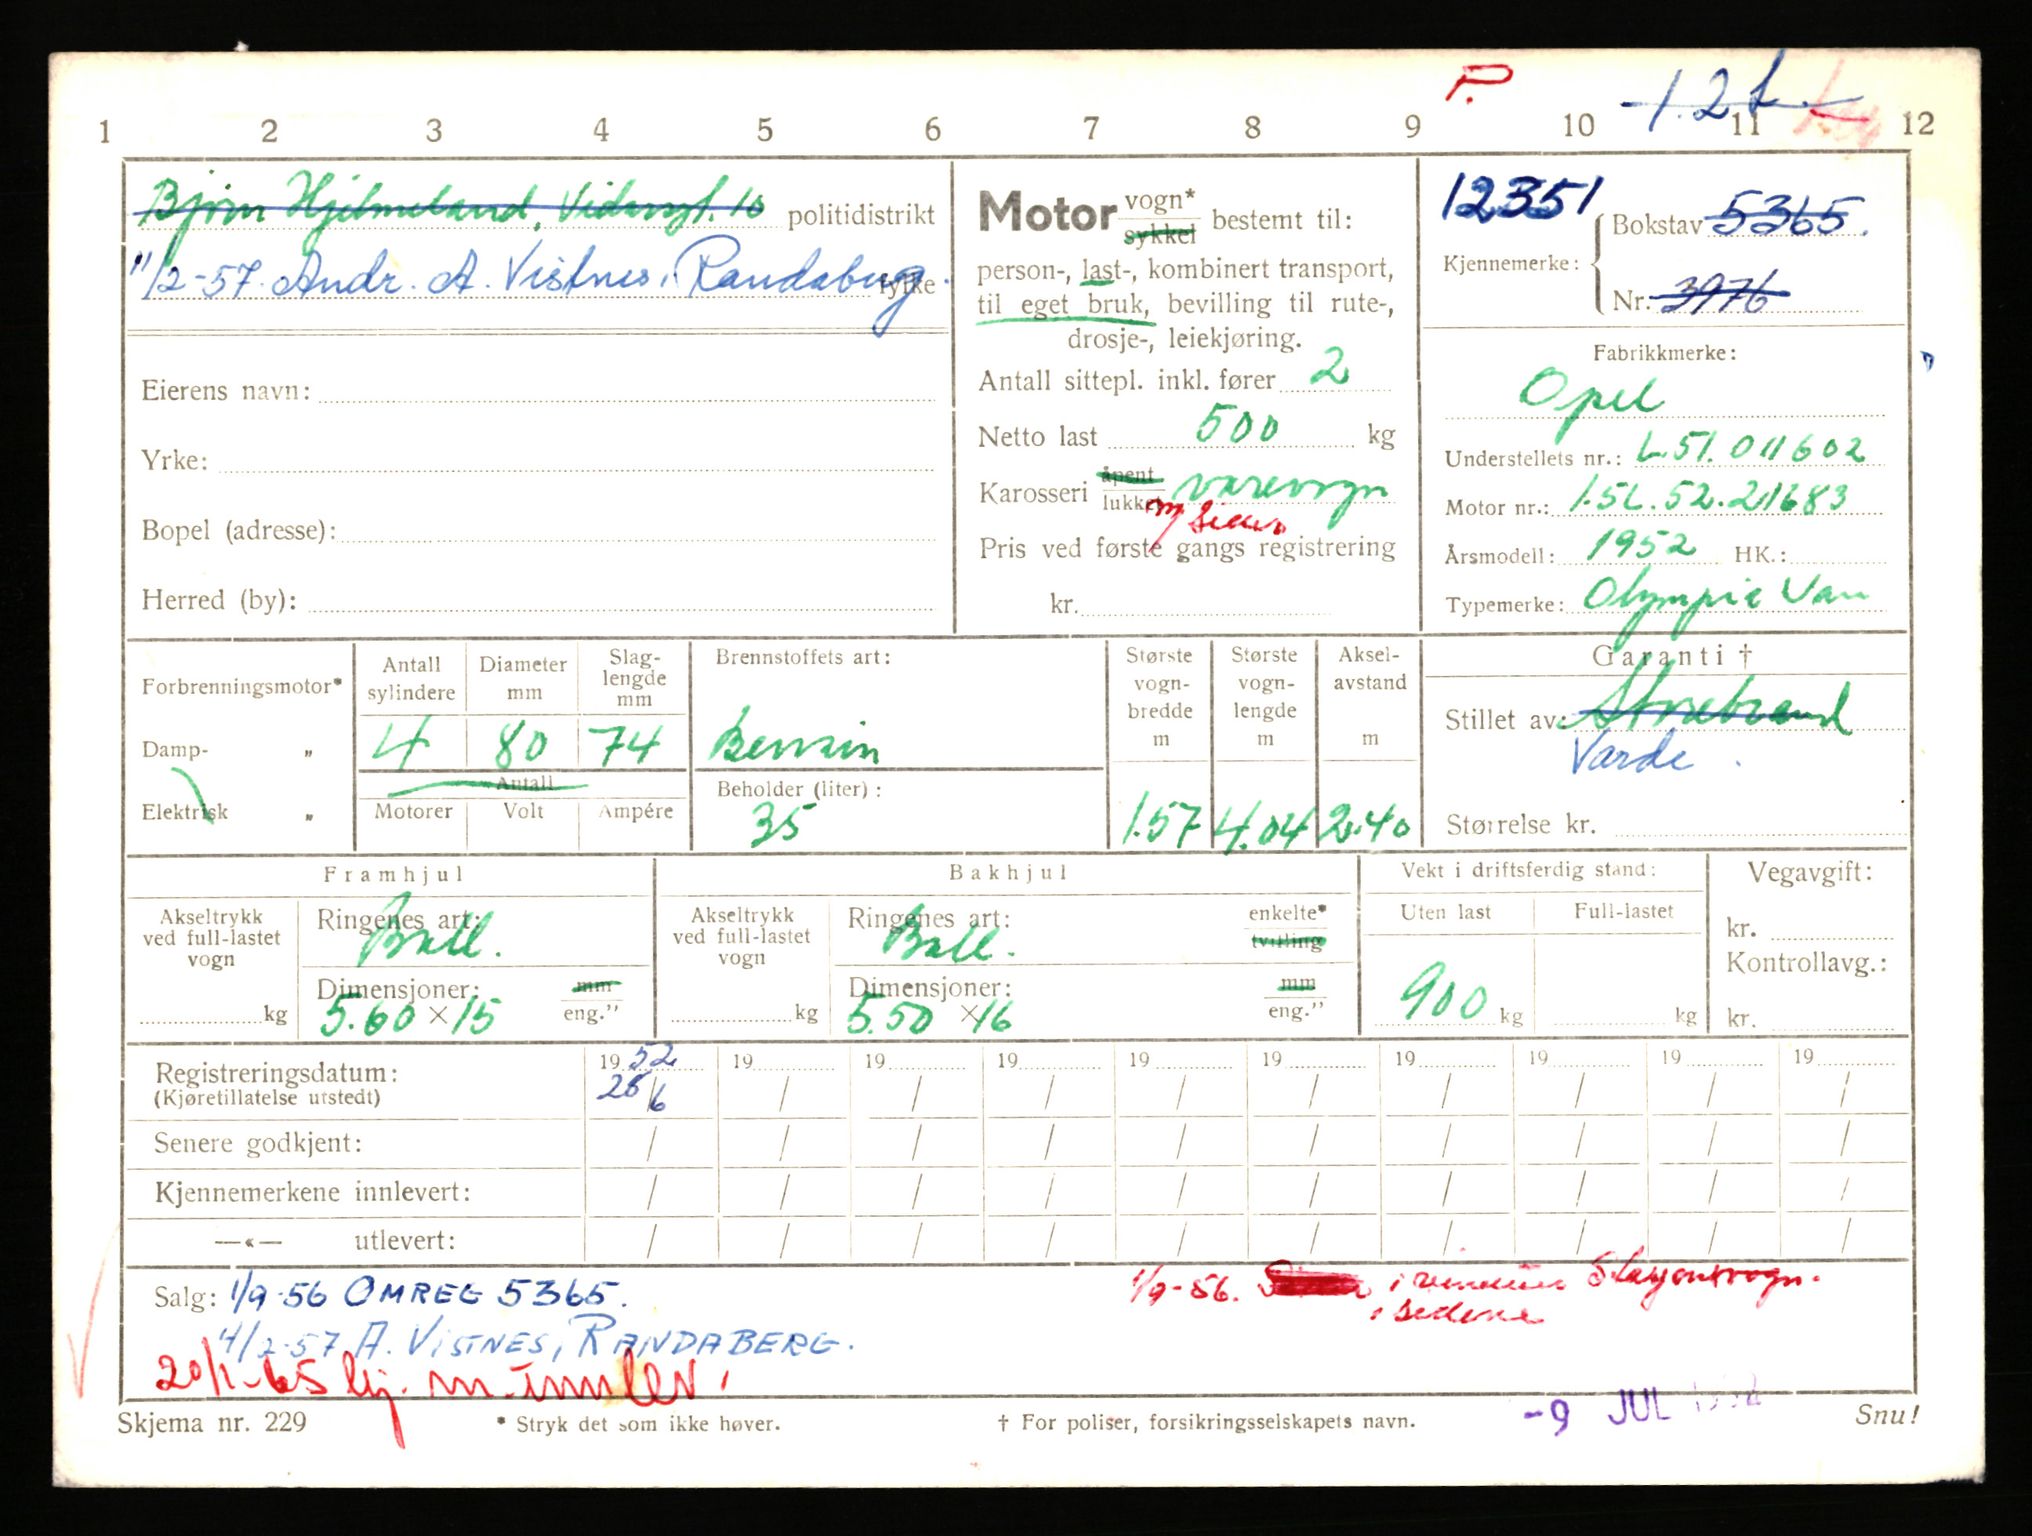 P. 1.2 t
1 2 3 4 5 6 7 8 9 10 11 12
Bjørn Hjelmeland, politidistrikt
11/2-57. Andr. A. Vistnes, Randaberg. fylke
Eierens navn:
Yrke:
Bopel (adresse):
Herred (by):
Motor vogn* sykkel bestemt til:
person-, last-, kombinert transport,
til eget bruk, bevilling til rute-,
drosje-, leiekjøring.
Antall sittepl. inkl. fører 2
Netto last 500 kg
Karosseri åpent lukket varevogn
m/ sider
Pris ved første gangs registrering
kr.
12351
Kjennemerke: Bokstav 5365.
Nr. 3976
Fabrikkmerke:
Opel
Understellets nr.: L.51.011602
Motor nr.: 1.5L.52.211683
Årsmodell: 1952 HK.:
Typemerke: Olympia Van
Forbrenningsmotor*
Damp- „
Elektrisk „
Antall sylindere Diameter mm Slaglengde mm
4 80 74
Antall
Motorer Volt Ampére
Brennstoffets art:
Bensin
Beholder (liter):
35
Største vognbredde m 1.57
Største vognlengde m 4.04
Akselavstand m 2.40
Garanti †
Stillet av: Storebrand
Varde.
Størrelse kr.
Framhjul
Akseltrykk ved full-lastet vogn kg
Ringenes art: Ball.
Dimensjoner: mm
5.60 × 15 eng."
Bakhjul
Akseltrykk ved full-lastet vogn kg
Ringenes art: Ball. enkelte* tvilling
Dimensjoner: mm
5.50 × 16 eng."
Vekt i driftsferdig stand:
Uten last Full-lastet
900 kg kg
Vegavgift:
kr.
Kontrollavg.:
kr.
Registreringsdatum: 1952 19 19 19 19 19 19 19 19 19
(Kjøretillatelse utstedt) 28/6 / / / / / / / / /
Senere godkjent: / / / / / / / / / /
Kjennemerkene innlevert: / / / / / / / / / /
—«— utlevert: / / / / / / / / / /
Salg: 1/9-56 OMREG 5365.
4/2-57 A. VISTNES, RANDABERG.
20/1-65 kj. m. innlev.
1/9-56. i Stasjonsvogn.
i sidene
Skjema nr. 229 * Stryk det som ikke høver. † For poliser, forsikringsselskapets navn. -9 JUL Snu!